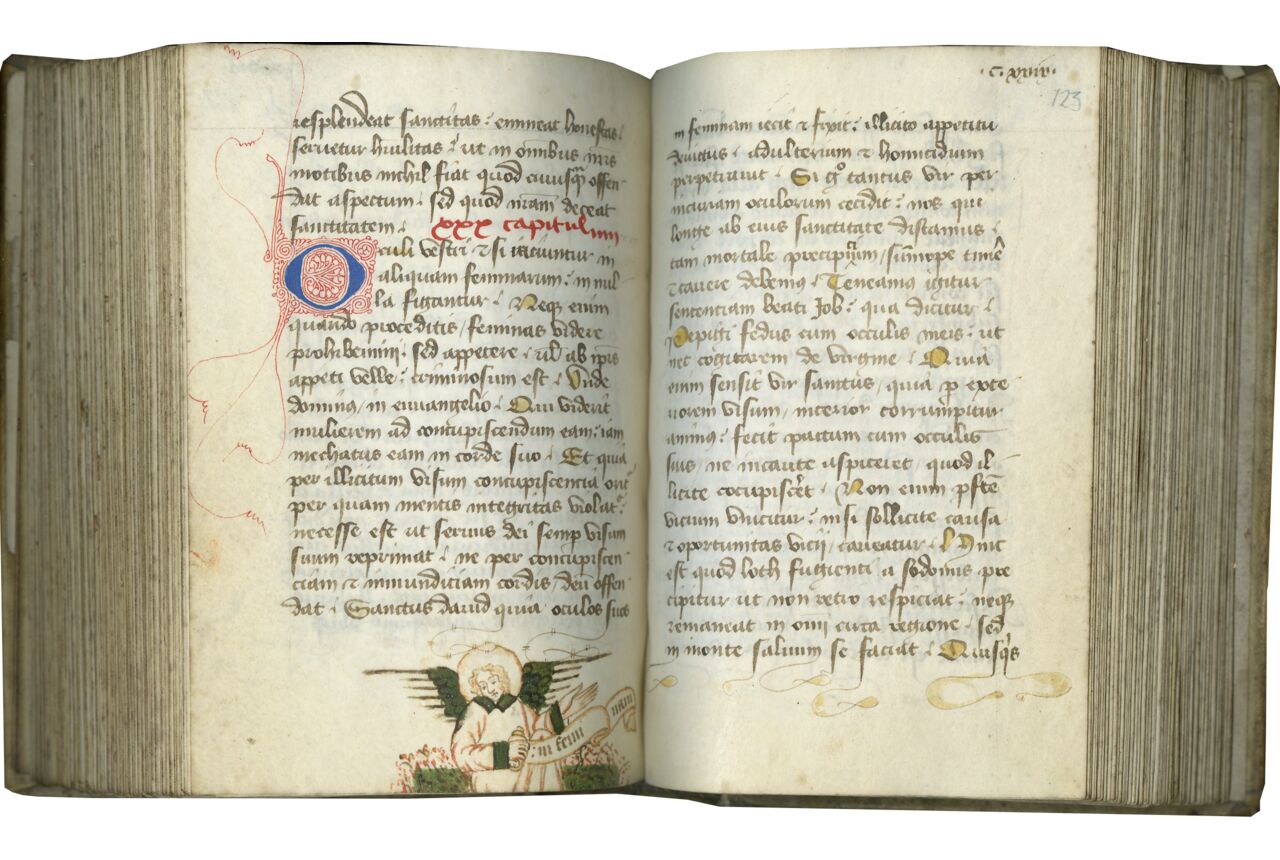 resplendeat sanctitas : emineat honestas :
seruetur huilitas : ut in omnibus nris
motibus nichil fiat quod cuiusqȝ offen
dat aspectum . sed quod nram deceat
sanctitatem . xxx capitulum
Oculi vestri etsi iaciuntur in
aliquam feminarum : in nul
la figantur . Neqȝ enim
quando proceditis / feminas videre
prohibemini . sed appetere . ul ab ipis
appeti velle : criminosum est . Unde
dominus / in euuangelio . Qui viderit
mulierem ad concupiscendum eam : iam
mechatus eam in corde suo . Et quia
per illicitum visum concupiscencia orit
per quam mentis integritas violat :
necesse est ut seruus dei semp visum
suum reprimat . ne per concupiscen
ciam et inmundiciam cordis deu offen
dat . Sanctus dauid quia oculos suos
in femi nam
·C·xxiix·
123
in feminam iecit et fixit : illicito appetitu
deuictus . adulterium et homicidium
perpetrauit . Si go tantus vir per
incuriam oculorum cecidit : nos qui
longe ab eius sanctitate distamus .
tam mortale precipicium / sumope time
et cauere debemus . Teneamus igitur
sentenciam beati Job . qua dicitur .
Pepigi fedus cum occulis meis . ut
nec cogitarem de virgine . Quia
enim sensit vir sanctus / quia per exte
riorem visum / interior corrumpitur
animus : fecit pactum cum occulis
suis / ne incaute aspiceret / quod il
licite cocupiscet . Non enim pfte
vicium vincitur : nisi sollicite causa
et oportunitas vicij / caueatur . Hinc
est quod loth fugienti a sodomis pre
cipitur ut non retro respiciat : neqȝ
remaneat in omi circa regione . sed
in monte saluum se faciat . Quisqs